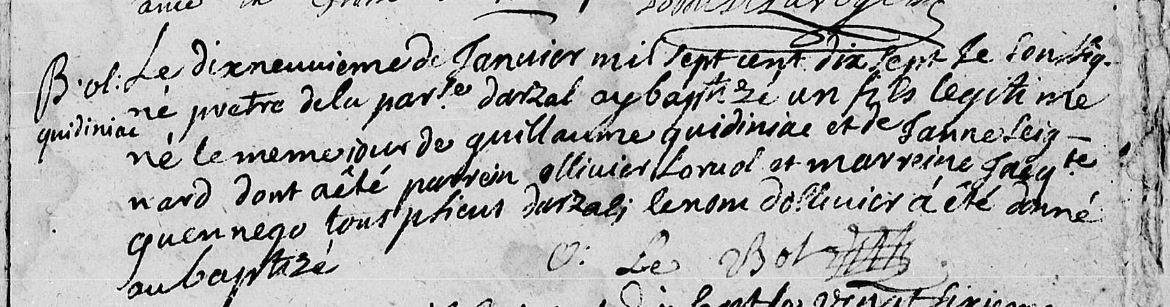 B. ol: Le dixneuvieme de Janvier mil sept cent dix sept Je Soussig-
quidiniac né pretre de la par.se darzal ay baptizé un fils legitime
né le meme jour de guillaume quidiniac et de Janne Leig-
nard dont a êté parrein ollivier Lorud et marreine Jacq.te
guennego tous plieurs darzal; le nom dollivier á êté donné
au baptizé
O. Le Bot